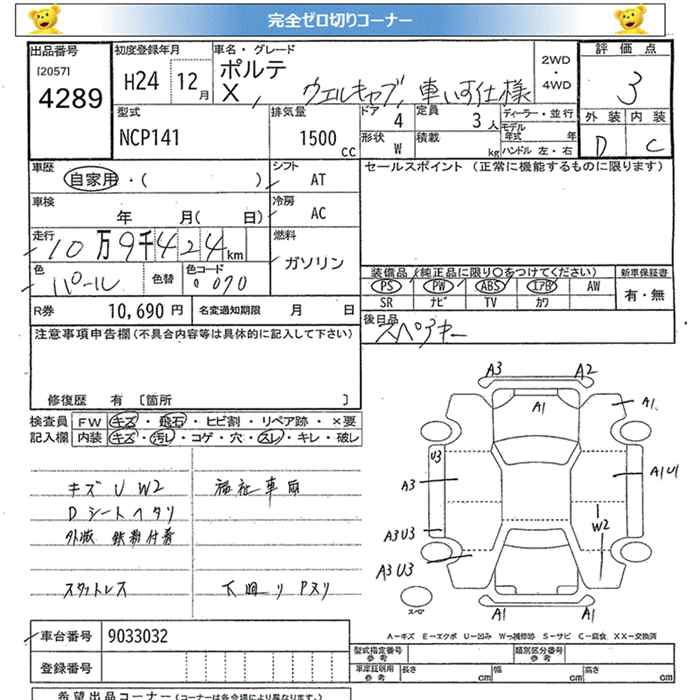 完全ゼロ切りコーナー
出品番号 初度登録年月 車名・グレード 評価点
[2057] 4289 H24 12月 ポルテ X, ウェルキャブ, 車いす仕様 2WD・4WD 3
型式 排気量 ドア 4 定員 3人 ディーラー・並行 外装 内装
NCP141 1500cc 形状 W 積載 kg モデル年式 年 ハンドル 左・右 D C
車歴 自家用・( ) シフト AT セールスポイント (正常に機能するものに限ります)
車検 年 月( 日) 冷房 AC
走行 10万9千424km 燃料 ガソリン
色 パール 色替 色コード 070
装備品 (純正品に限り○をつけてください) 新車保証書
PS PW ABS エアB AW 有・無
SR ナビ TV カワ
R券 10,690円 名変通知期限 月 日
後日品 スペアキー
注意事項申告欄(不具合内容等は具体的に記入して下さい)
修復歴 有 [箇所 ]
検査員記入欄 FW キズ・飛石・ヒビ割・リペア跡・×要
内装 キズ・汚レ・コゲ・穴・スレ・キレ・破レ
キズ U W2 福祉車両
Dシートヘタリ
外減 鉄粉付着
スタットレス 下回リ Pスリ
A3 A2
A1 A1
U3
A3 A1U1
A3U3 W2
A3U3
スペア A1 A1
A-キズ E-エクボ U-凹み W-補修跡 S-サビ C-腐食 XX-交換済
車台番号 9033032
登録番号
型式指定番号 参考 類別区分番号 参考
車庫証明用 参考 長さ cm 幅 cm 高さ cm
希望出品コーナー(コーナーは各会場により異なります。)